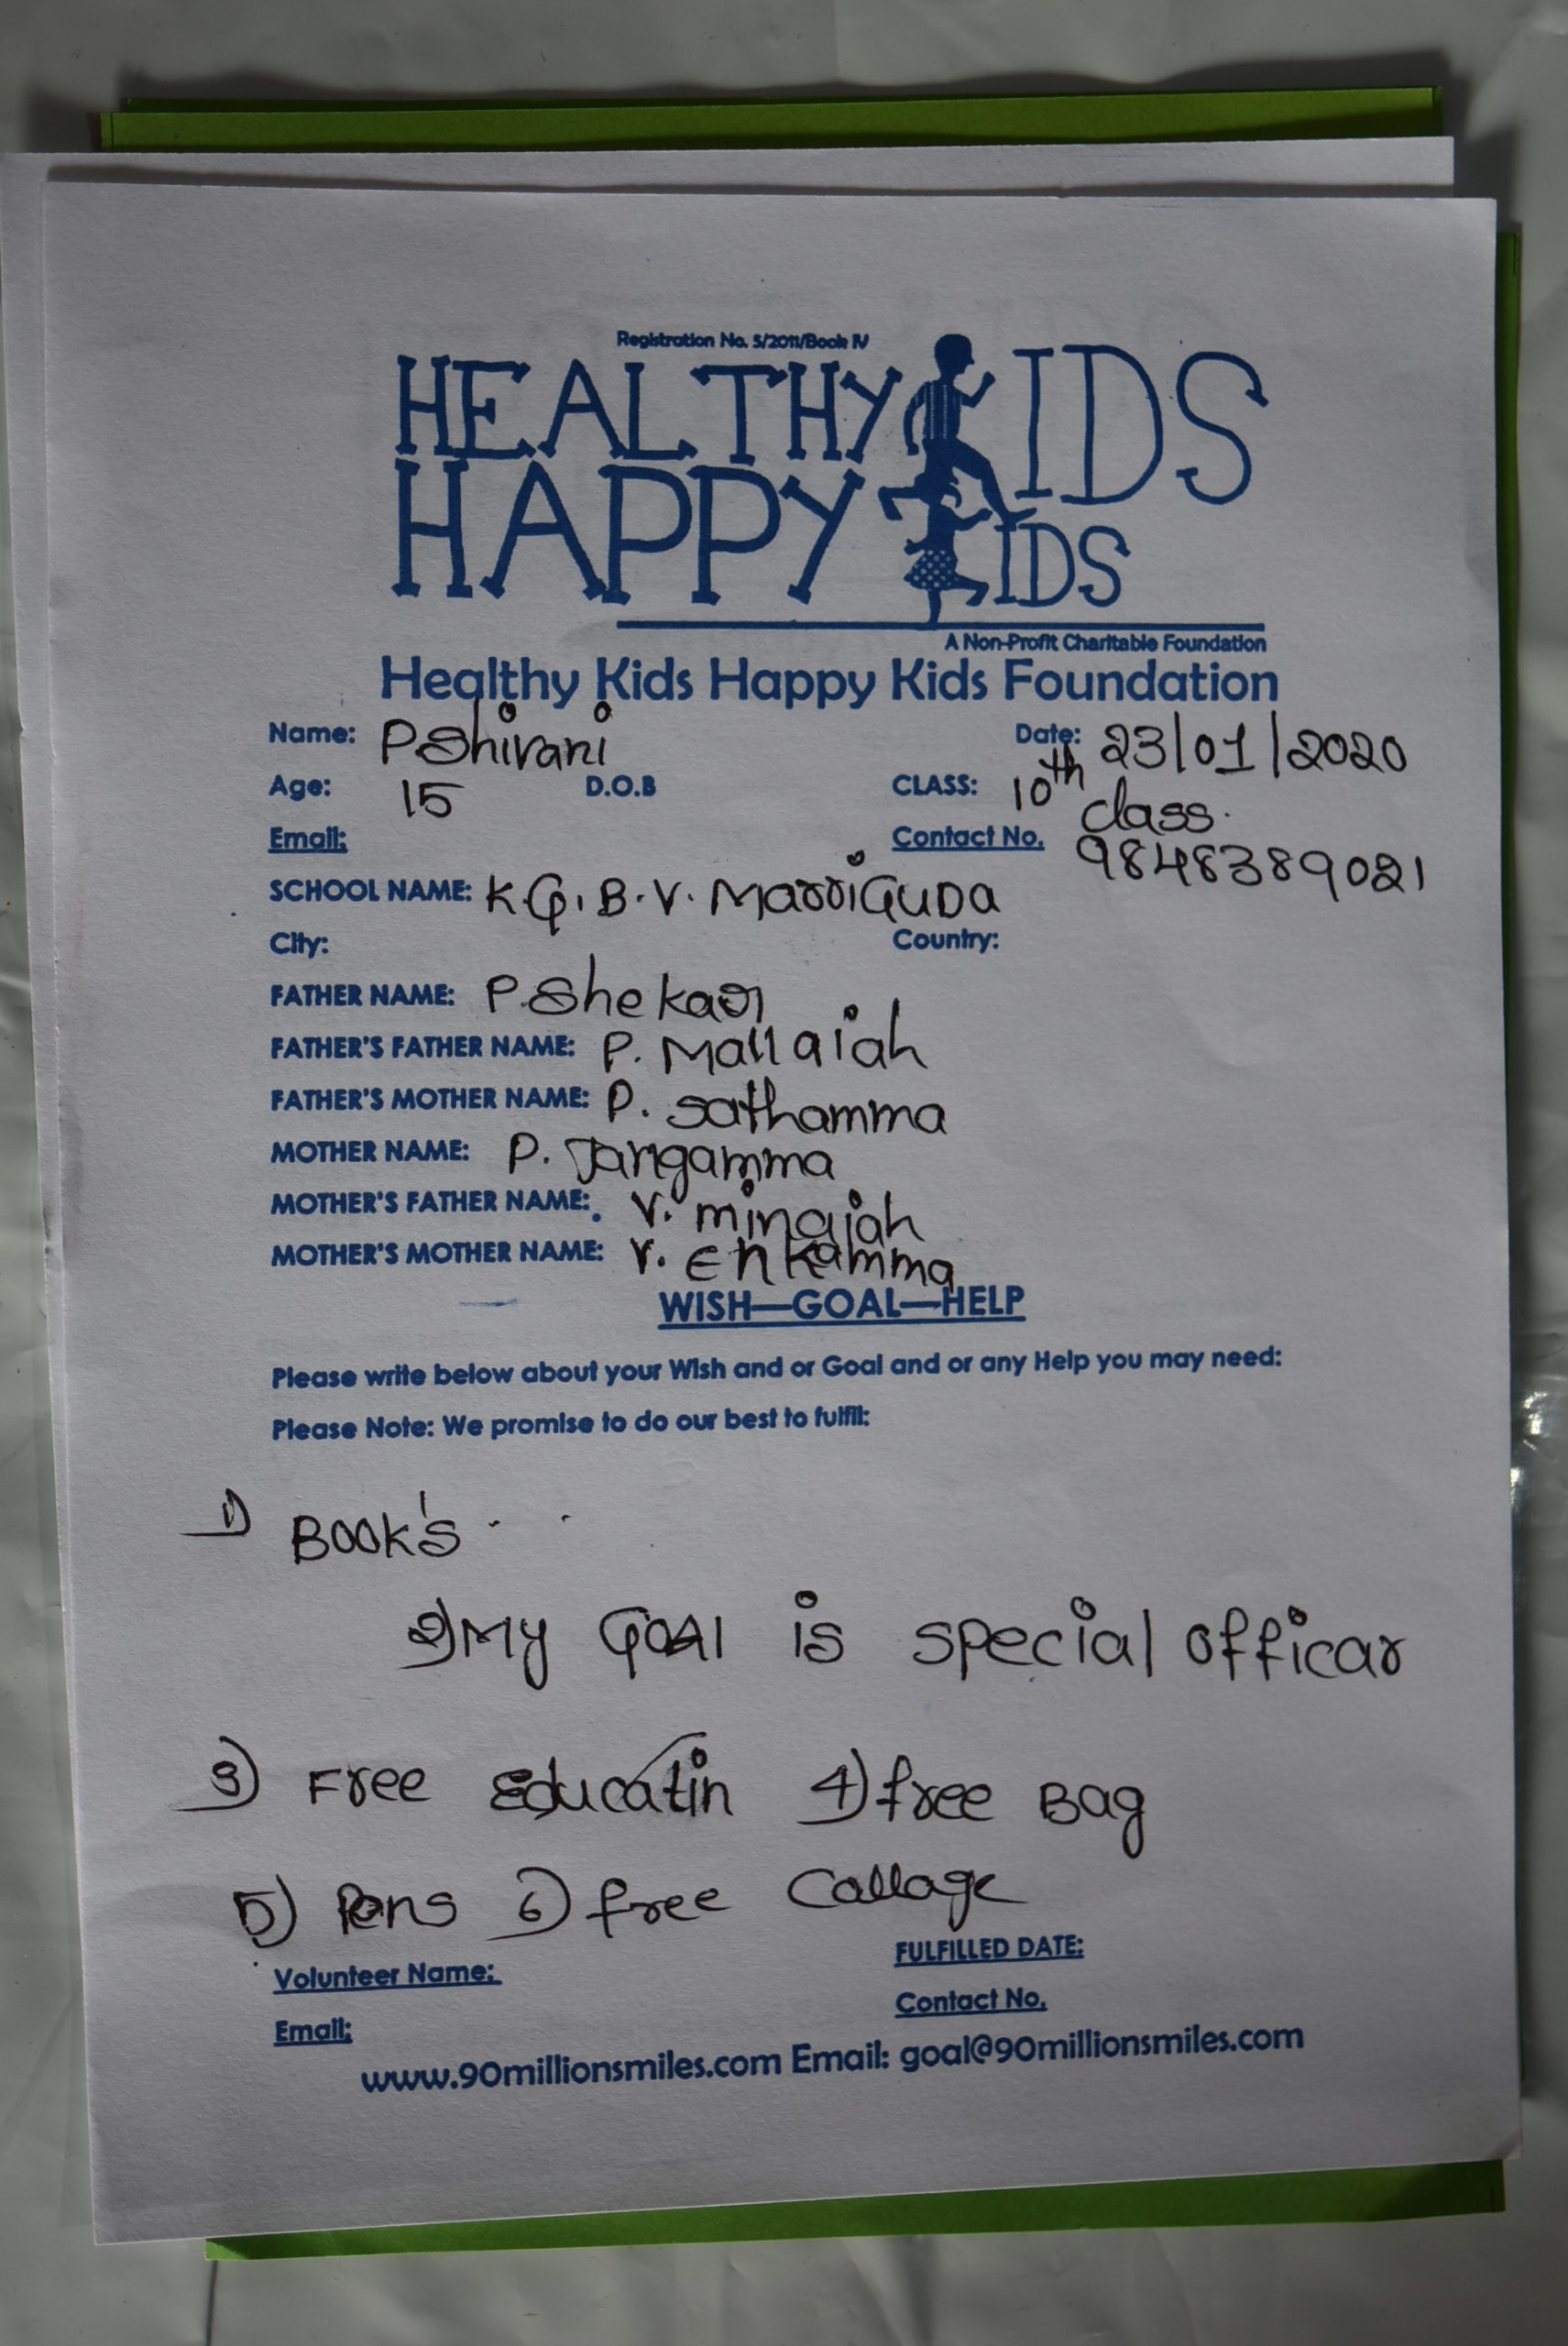 Registration No. 5/2011/Book IV
HEALTHY KIDS
HAPPY KIDS
A Non-Profit Charitable Foundation
Healthy Kids Happy Kids Foundation
Name: P Shivani Date: 23/01/2020
Age: 15 D.O.B CLASS: 10th class.
Email: Contact No. 9848389021
SCHOOL NAME: K.G.B.V. MarriGUDa
City: Country:
FATHER NAME: P. Shekar
FATHER'S FATHER NAME: P. Mallaiah
FATHER'S MOTHER NAME: P. sathamma
MOTHER NAME: P. Jangamma
MOTHER'S FATHER NAME: V. minaiah
MOTHER'S MOTHER NAME: V. Enkamma
WISH—GOAL—HELP
Please write below about your Wish and or Goal and or any Help you may need:
Please Note: We promise to do our best to fulfil:
1) Book's
2) My Goal is special officar
3) Free Educatin 4) free Bag
5) Pens 6) free Callage
Volunteer Name: FULFILLED DATE:
Email: Contact No.
www.90millionsmiles.com Email: goal@90millionsmiles.com